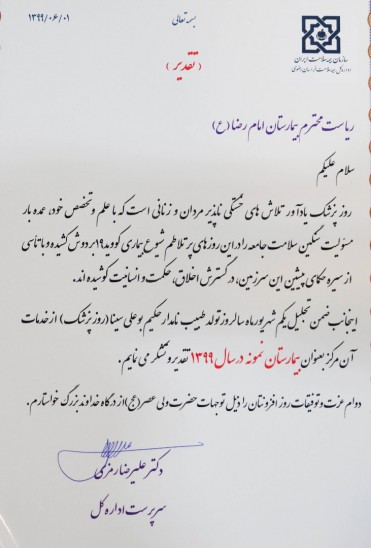 ۱۳۹۹/۰۶/۰۱
بسمه تعالی
سازمان بیمه سلامت ایران
اداره کل بیمه سلامت خراسان رضوی
( تقدیر )
ریاست محترم بیمارستان امام رضا (ع)
سلام علیکم
روز پزشک یادآور تلاش های خستگی ناپذیر مردان و زنانی است که با علم و تخصص خود، عمده بار
مسئولیت سنگین سلامت جامعه را در این روزهای پر تلاطم شیوع بیماری کووید۱۹ بر دوش کشیده و با تأسی
از سیره حکمای پیشین این سرزمین، در گسترش اخلاق، حکمت و انسانیت کوشیده اند.
اینجانب ضمن تجلیل یکم شهریور ماه سالروز تولد طبیب نامدار حکیم بوعلی سینا (روز پزشک) از خدمات
آن مرکز بعنوان بیمارستان نمونه در سال ۱۳۹۹ تقدیر و تشکر می نمایم.
دوام عزت و توفیقات روز افزونتان را ذیل توجهات حضرت ولی عصر (عج) از درگاه خداوند بزرگ خواستارم.
دکتر علیرضا رمزکی
سرپرست اداره کل